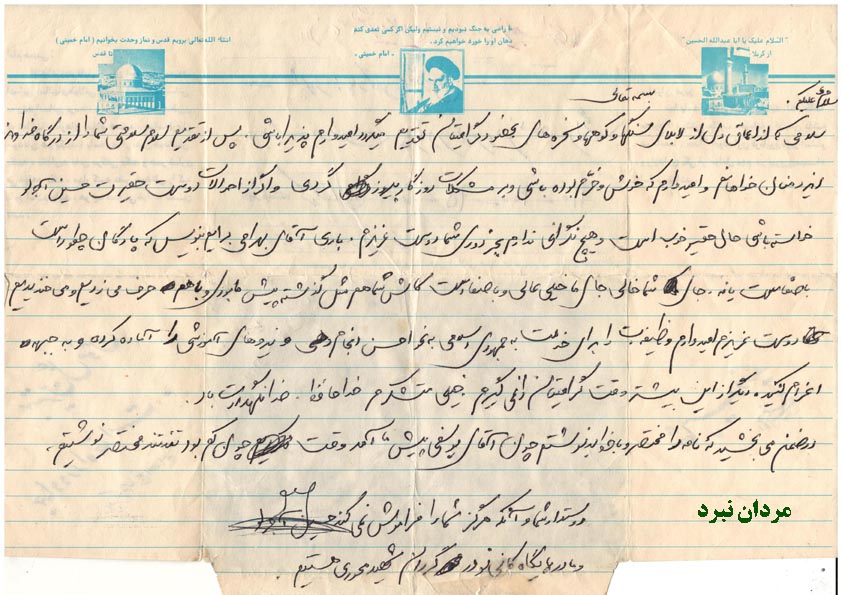 ما راضی به جنگ نبودیم و نیستیم ولیکن اگر کسی تعدی کند
دهان او را خورد خواهیم کرد.
- امام خمینی -
"السلام علیک یا ابا عبدالله الحسین"
از کربلا
انشاء الله تعالی برویم قدس و نماز وحدت بخوانیم (امام خمینی)
تا قدس
بسمه تعالی
سلام علیکم.
سلامی که از اعماق دل از لابلای سنگها و کوهها و صخره های بحضور گرامیتان تقدیم میگردد امیدوارم پذیرا باشی. پس از تقدیم سلام سلامتی شما را از درگاه خداوند
خواهانم و امیدوارم که خوش و خرم بوده باشی و بر مشکلات روزگار پیروز گردی و اگر از احوالات دوست حقیرت حسین
خواسته باشی حال حقیر خوب است و هیچ نگرانی ندارم بجز دوری شما دوست عزیزم. باری آقای بهرامی برایم بنویس که پادگان چطور است
باصفا است یا نه. جای شما خالی جای ما خیلی عالی و باصفا است کاش شما هم مثل گذشته پیش ما بودی و با هم حرف می زدیم و می خندیدیم
دوست عزیزم امیدوارم وظیفه ات را برای خدمت به جمهوری اسلامی به نحو احسن انجام دهی و نیروهای آموزشی را آماده کرده و به جبهه
اعزام کنید. دیگر از این بیشتر وقت گرامیتان را نمی گیرم. خیلی متشکرم خدا حافظ. خدا نگهدارت باد.
در ضمن می بخشید که نامه را مختصر و نوشتم چون آقای یوسفی پیش ما آمد وقت چون کم بود مختصر نوشتیم.
دوستدار شما و آنکه هرگز شما را فراموش نمی کند حسین
و ما در پایگاه گردان شهید هستیم.
مردان نبرد